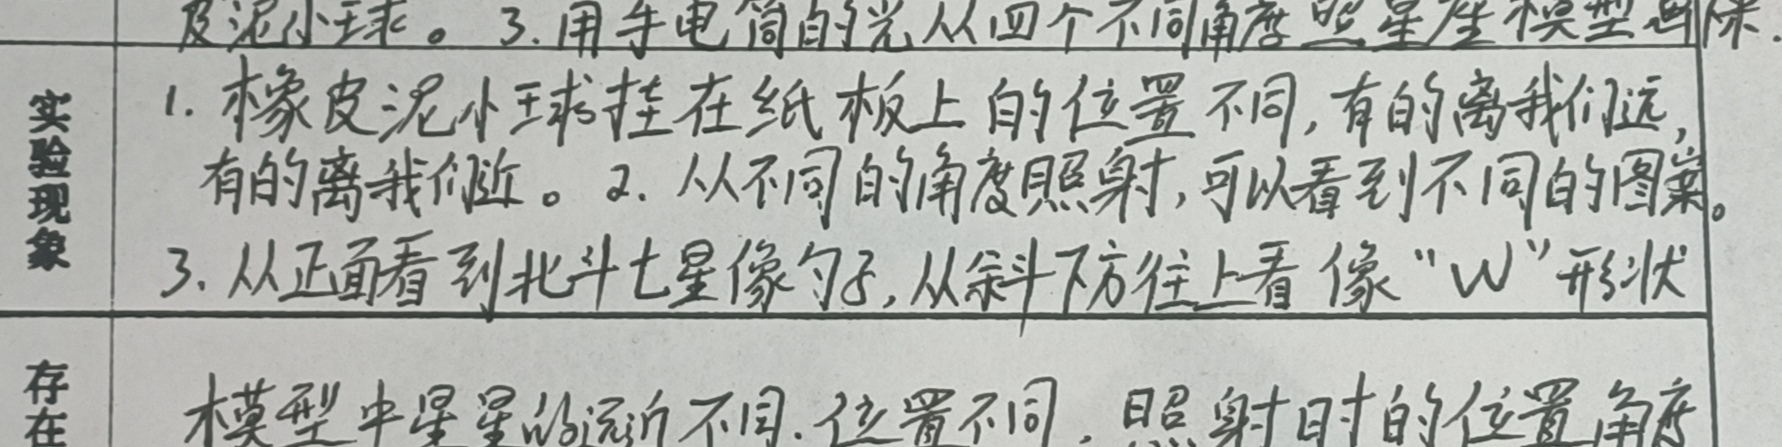 皮泥小球。3.用手电筒的光从四个不同角度照星座模型
实验现象
1.橡皮泥小球挂在纸板上的位置不同,有的离我们远,
有的离我们近。2.从不同的角度照射,可以看到不同的图案。
3.从正面看到北斗七星像勺子,从斜下方往上看像“W”形状
存在
模型中星星的远近不同.位置不同,照射时的位置角度